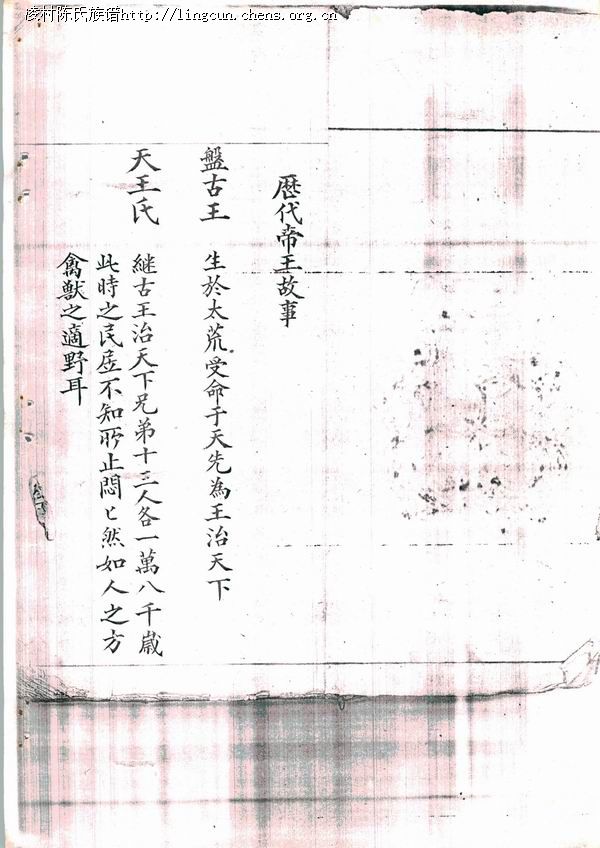 凌村陈氏族谱http://lingcun.chens.org.cn
歷代帝王故事
盤古王 生於太荒受命于天先為王治天下
天王氏 継古王治天下兄弟十三人各一萬八千歳
此時之民居不知所止悶匕然如人之方
禽獸之適野耳